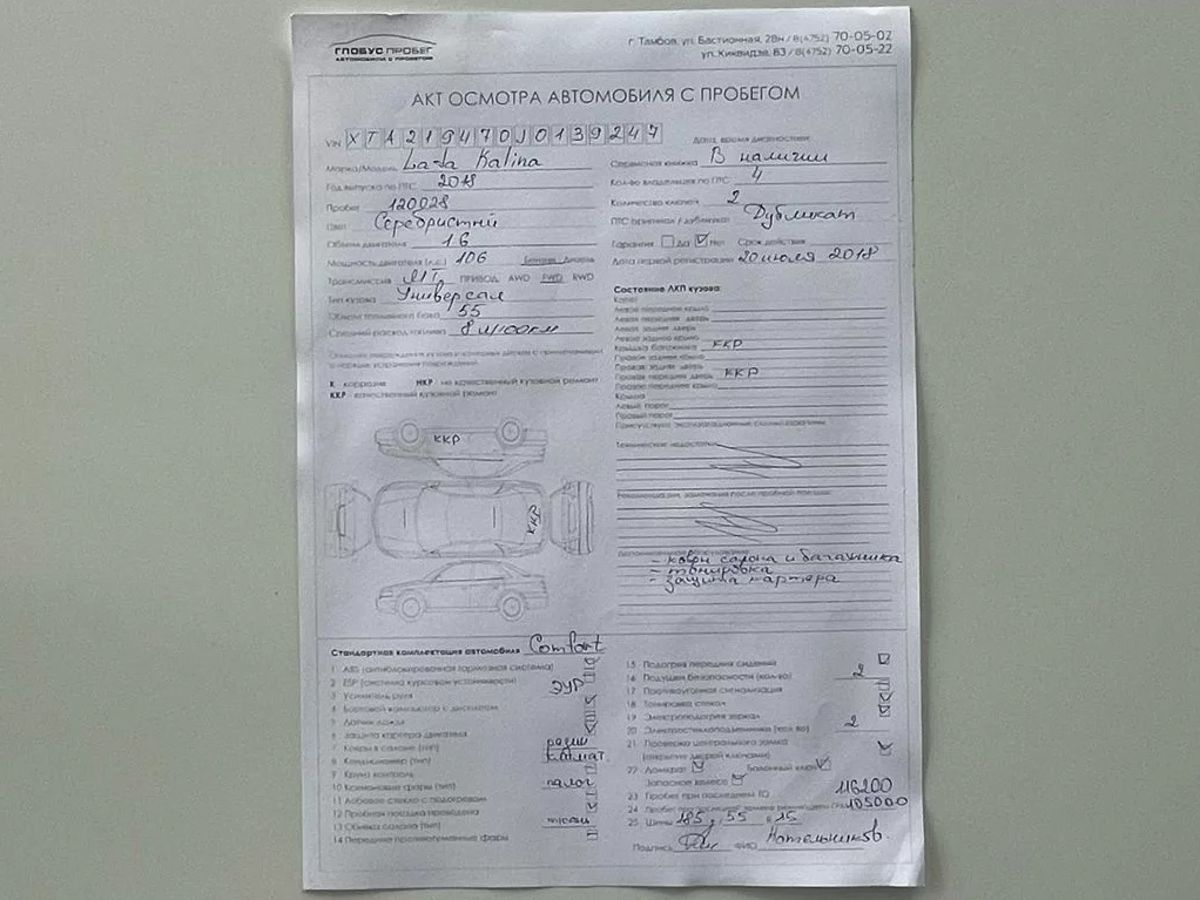 ГЛОБУС ПРОБЕГ
АВТОМОБИЛИ С ПРОБЕГОМ
г. Тамбов, ул. Бастионная, 28н / 8(4752) 70-05-02
ул. Киквидзе, 83 / 8(4752) 70-05-22
АКТ ОСМОТРА АВТОМОБИЛЯ С ПРОБЕГОМ
VIN XTA219470J0139247
Марка/Модель Lada Kalina
Год выпуска по ПТС 2018
Пробег 120028
Цвет Серебристый
Объем двигателя 1.6
Мощность двигателя (л.с.) 106 Бензин Дизель
Трансмиссия МТ ПРИВОД AWD FWD RWD
Тип кузова Универсал
Объем топливного бака 55
Средний расход топлива 8 л/100км
К коррозия НКР - не качественный кузовной ремонт
ККР - качественный кузовной ремонт
ККР
ККР
Дата, время диагностики
Сервисная книжка В наличии
Кол-во владельцев по ПТС 4
Количество ключей 2
ПТС оригинал / дубликат Дубликат
Гарантия Да Нет Срок действия
Дата первой регистрации 20 июля 2018
Состояние ЛКП кузова:
Капот
Левое переднее крыло
Левая передняя дверь
Левая задняя дверь
Левое заднее крыло
Крышка багажника ККР
Правое заднее крыло
Правая задняя дверь
Правая передняя дверь ККР
Правое переднее крыло
Крыша
Левый порог
Правый порог
Технические недостатки
Рекомендации, замечания после пробной поездки
Дополнительное оборудование
- ковры салона и багажника
- тонировка
- защита картера
Стандартная комплектация автомобиля Comfort
1 ABS (антиблокировочная тормозная система)
2 ESP (система курсовой устойчивости)
3 Усилитель руля ЭУР
4 Бортовой компьютер с дисплеем
5 Датчик дождя
6 Защита картера двигателя
7 Ковры в салоне (тип) резин
8 Кондиционер (тип) климат.
9 Круиз контроль
10 Ксеноновые фары (тип) галог
11 Лобовое стекло с подогревом
12 Пробная поездка проведена
13 Обивка салона (тип) ткань
14 Передние противотуманные фары
15 Подогрев передних сидений
16 Подушки безопасности (кол-во) 2
17 Противоугонная сигнализация
18 Тонировка стекол
19 Электроподогрев зеркал
20 Электростеклоподъемники (кол-во) 2
21 Проверка центрального замка
(закрытие дверей ключами)
22 Домкрат Балонный ключ
Запасное колесо
23 Пробег при последнем ТО 116200
24 105000
25 Шины 185 / 55 R 15
Подпись ФИО Котельников.